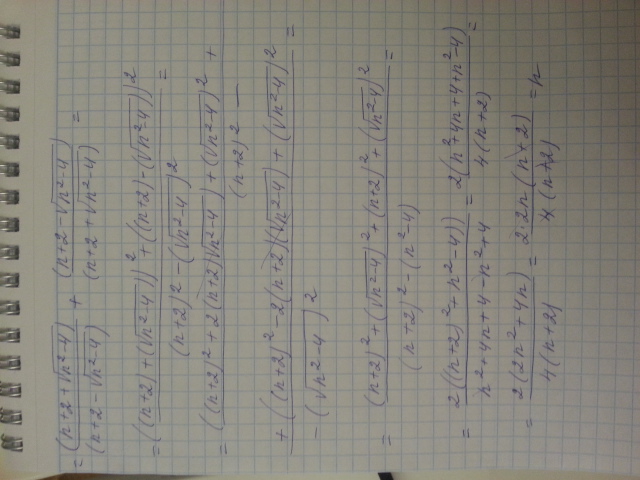 = (n+2+√(n²-4))/(n+2-√(n²-4)) + (n+2-√(n²-4))/(n+2+√(n²-4)) =
= (((n+2)+(√(n²-4)))² + ((n+2)-(√(n²-4)))²)/((n+2)²-(√(n²-4))²) =
= ((n+2)²+2(n+2)√(n²-4)+(√(n²-4))² +
+ ((n+2)²-2(n+2)(√(n²-4)+(√(n²-4))²)/((n+2)² -
- (√(n²-4))²) =
= ((n+2)²+(√(n²-4))²+(n+2)²+(√(n²-4))²)/((n+2)²-(n²-4)) =
= 2((n+2)²+n²-4))/(n²+4n+4-n²+4) = 2(n²+4n+4+n²-4)/(4(n+2)) =
= 2(2n²+4n)/(4(n+2)) = 2·2n(n+2)/(4(n+2)) = n